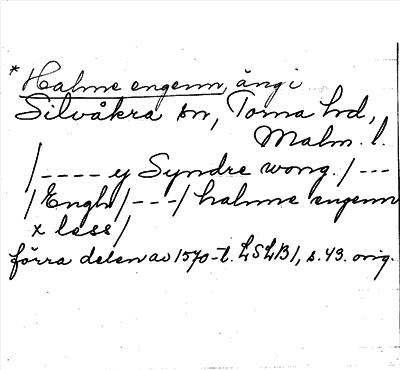 * Halme engenn, äng i
Silvåkra sn, Torna hd,
Malm. l.
/---- y Syndre wong. / ---
/ Engh / --- / halme engenn
x less /
förra delen av 1570-t. LSLB1, s. 43. orig.